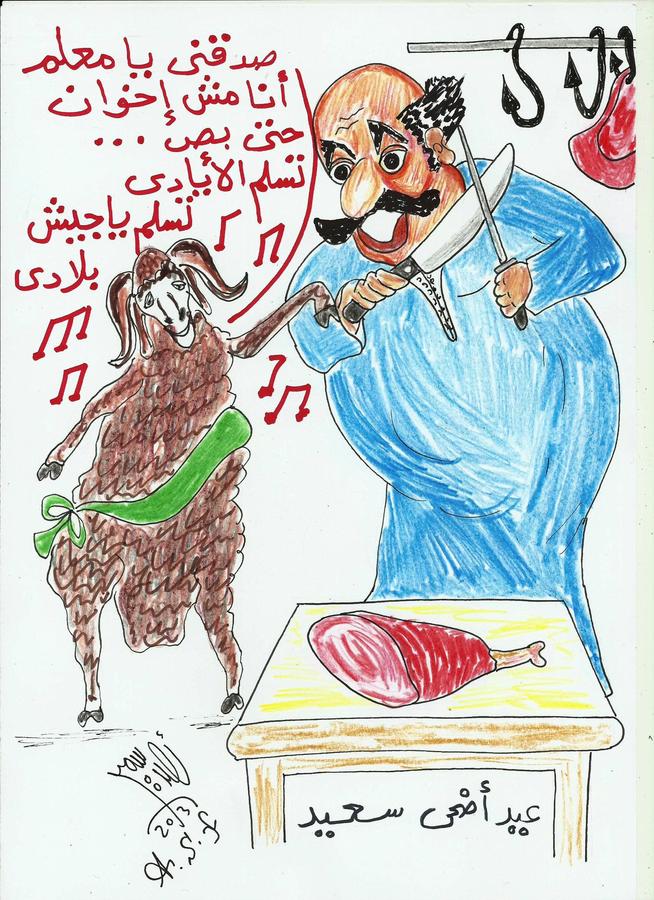 صدقنى يا معلم
أنا مش إخوان
حتى بص ...
تسلم الأيادى
تسلم يا جيش
بلادى
عيد أضحى سعيد
2013